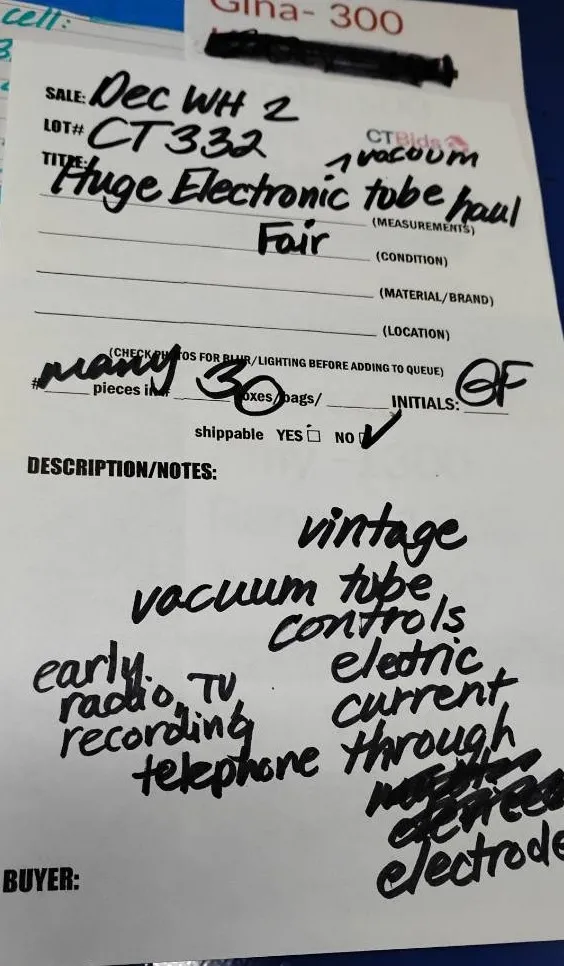 cell:
Gina- 300
SALE: Dec WH 2
LOT# CT332
CTBids
vacuum
TITLE: Huge Electronic tube haul
(MEASUREMENTS)
Fair (CONDITION)
(MATERIAL/BRAND)
(LOCATION)
(CHECK PHOTOS FOR BLUR/LIGHTING BEFORE ADDING TO QUEUE)
# many pieces in # 30 boxes/bags/ INITIALS: GF
shippable YES NO ✓
DESCRIPTION/NOTES:
vintage
vacuum tube
controls
eletric
current
through
electrode
early
radio, TV
recording
telephone
BUYER: